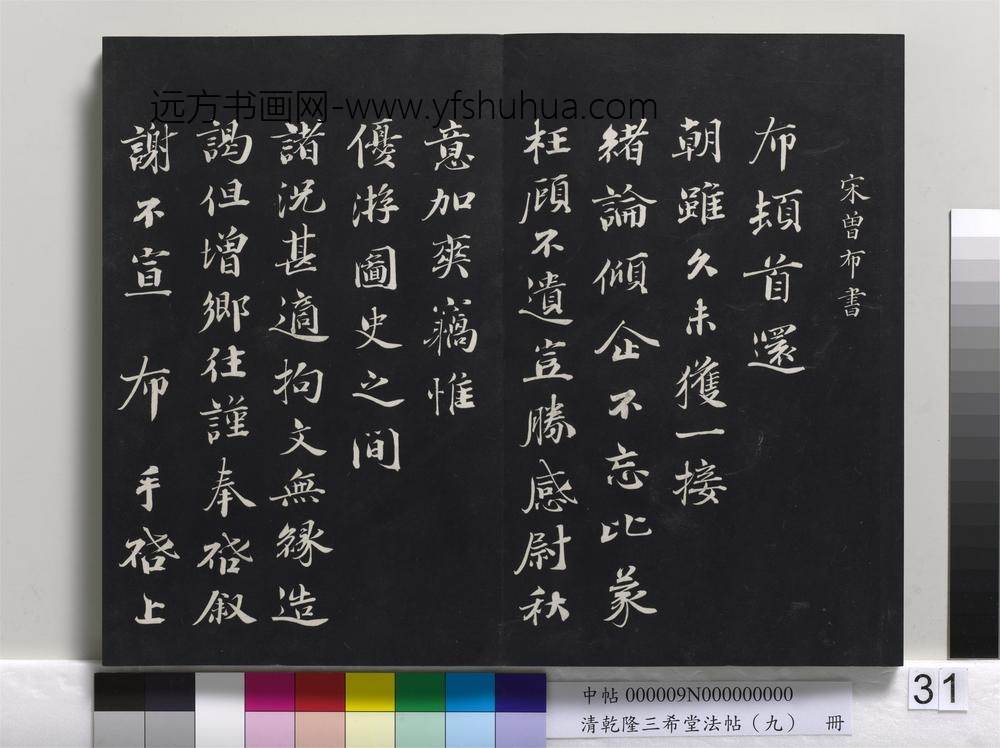 远方书画网-www.yfshuhua.com
宋曾布書
布頓首還
朝雖久未獲一接
緒論傾企不忘比蒙
枉顧不遺豈勝感尉秋
意加爽竊惟
優游圖史之間
諸況甚適拘文無緣造
謁但增鄉往謹奉啓叙
謝不宣 布 手啓上
中帖 000009N000000000
清乾隆三希堂法帖（九） 冊
31